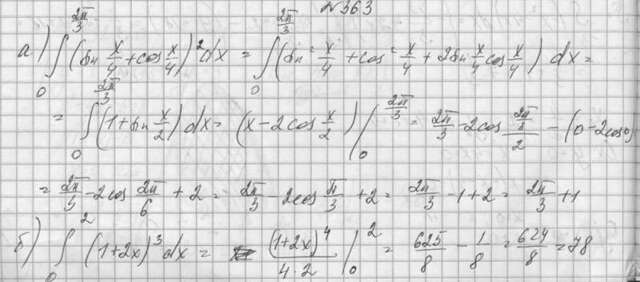 №363
а) ∫₀^{2π/3} (sin x/4 + cos x/4)² dx = ∫₀^{2π/3} (sin² x/4 + cos² x/4 + 2sin x/4 cos x/4) dx =
= ∫₀^{2π/3} (1 + sin x/2) dx = (x - 2cos x/2) |₀^{2π/3} = 2π/3 - 2cos (2π/3)/2 - (0 - 2cos0)
= 2π/3 - 2cos 2π/6 + 2 = 2π/3 - 2cos π/3 + 2 = 2π/3 - 1 + 2 = 2π/3 + 1
б) ∫₀² (1+2x)³ dx = (1+2x)⁴/(4·2) |₀² = 625/8 - 1/8 = 624/8 = 78